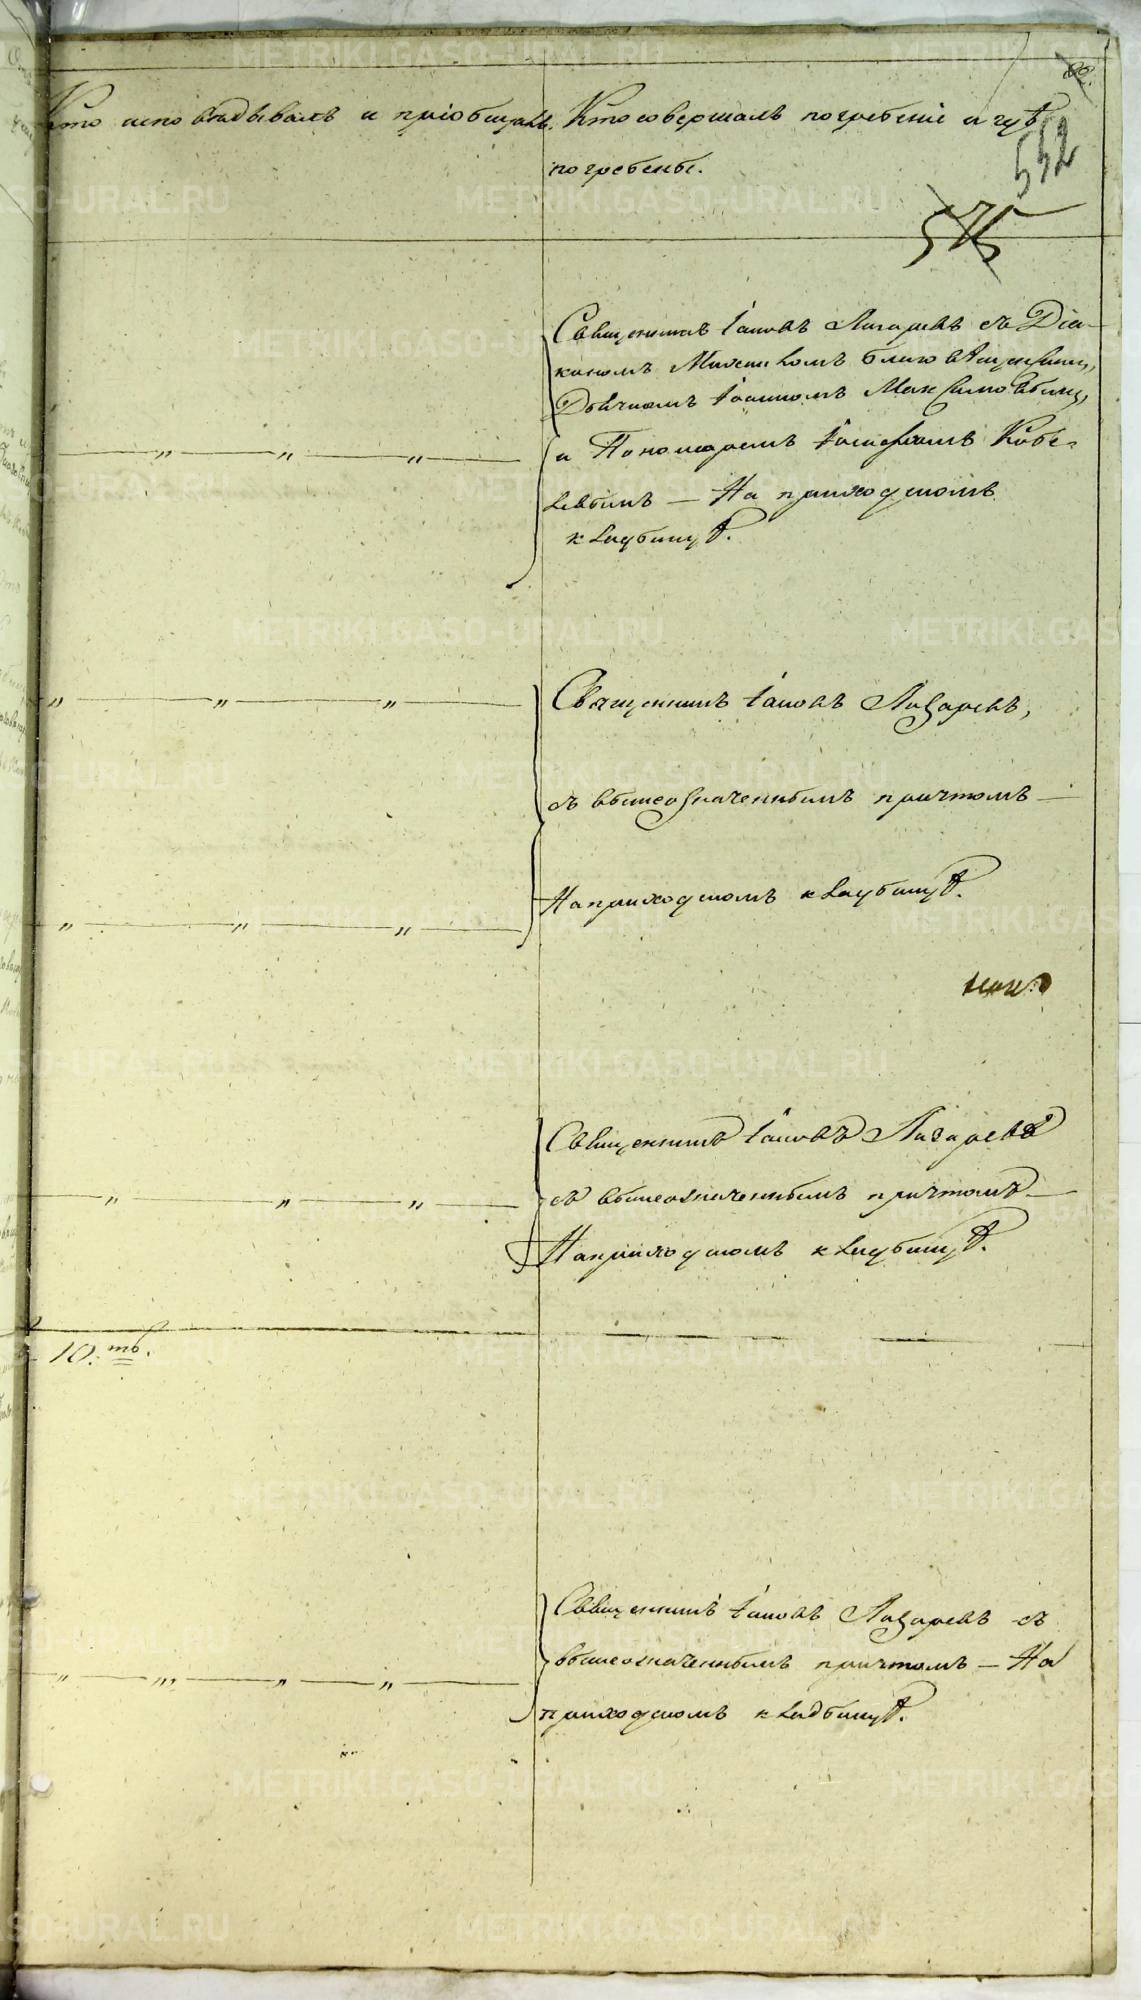 Кто исповѣдывалъ и пріобщалъ.
Кто совершалъ погребеніе и гдѣ
погребены.
542
575
Священникъ Іаковъ Лазаревъ съ Діа-
кономъ
Дьячкомъ Іоанномъ Максимовымъ,
и Пономаремъ Кобе-
левымъ — На приходскомъ
кладбищѣ.
Священникъ Іаковъ Лазаревъ,
съ вышеозначеннымъ причтомъ —
На приходскомъ кладбищѣ.
Священникъ Іаковъ Лазаревъ
съ вышеозначеннымъ причтомъ —
На приходскомъ кладбищѣ.
10.
Священникъ Іаковъ Лазаревъ съ
вышеозначеннымъ причтомъ — На
приходскомъ кладбищѣ.
METRIKI.GASO-URAL.RU